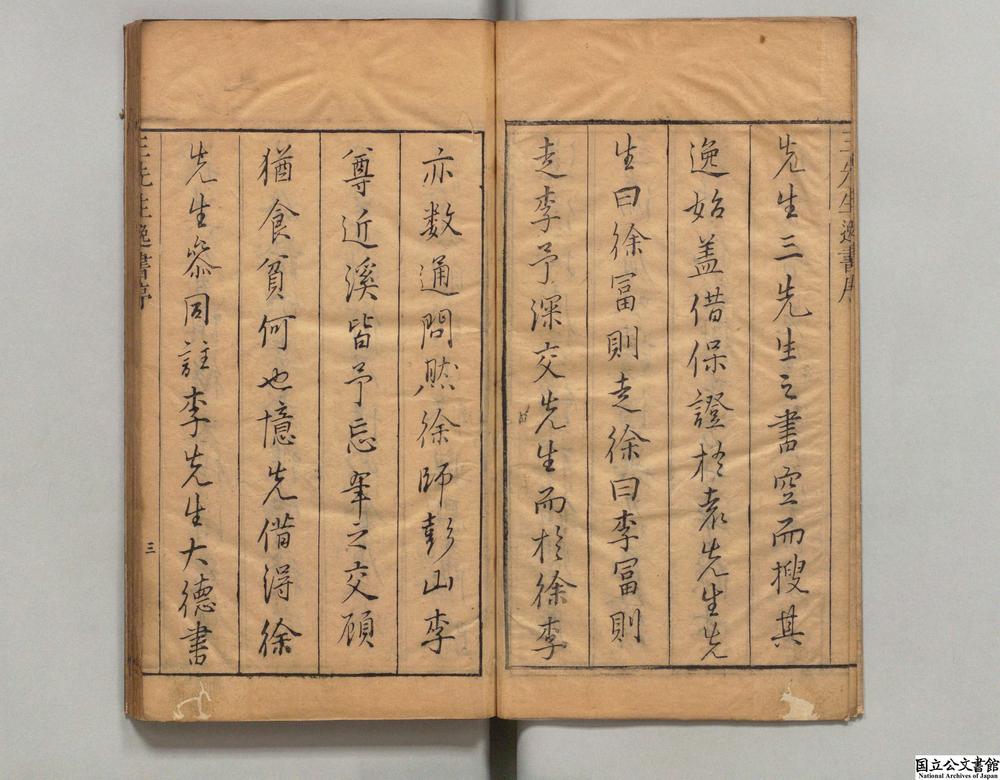 三先生逸書序
先生三先生之書空而搜其
逸始盖借保證於袁先生先
生曰徐冨則走徐曰李冨則
走李予深交先生而於徐李
亦数通問然徐師彭山李
尊近溪皆予忘年之交顧
猶食貧何也憶先借得徐
先生叅同註李先生大德書
三先生逸書序
三
国立公文書館
National Archives of Japan